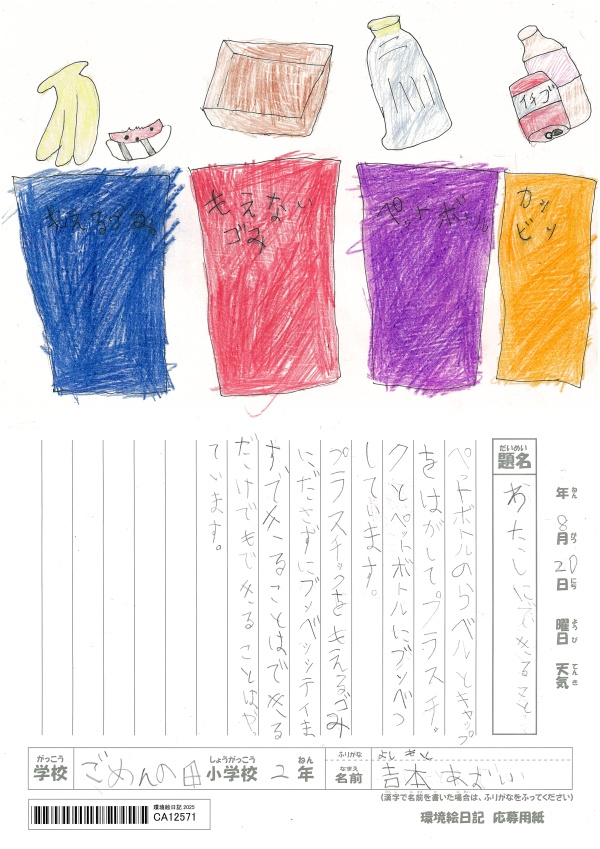 イチゴ
もえるゴミ
もえない
ゴみ
ペットボトル
カン
ビン
年 8月 20日 曜日 天気
ねん がつ にち ようび てんき
だいめい
題名
わたしにできること
ペットボトルのらベルとキャップ
をはがしてプラスチッ
クとペットボトルにブンベつ
しています。
プラスチックをもえるゴみ
にださずにブンベツシテイま
すできることはできる
だけでもできることはやっ
ています。
がっこう
学校
ごめんの田
しょうがっこう
小学校
2
ねん
年
ふりがな
なまえ
名前
よし もと
吉本 あおい
(漢字で名前を書いた場合は、ふりがなをふってください)
環境絵日記 2025
CA12571
環境絵日記 応募用紙